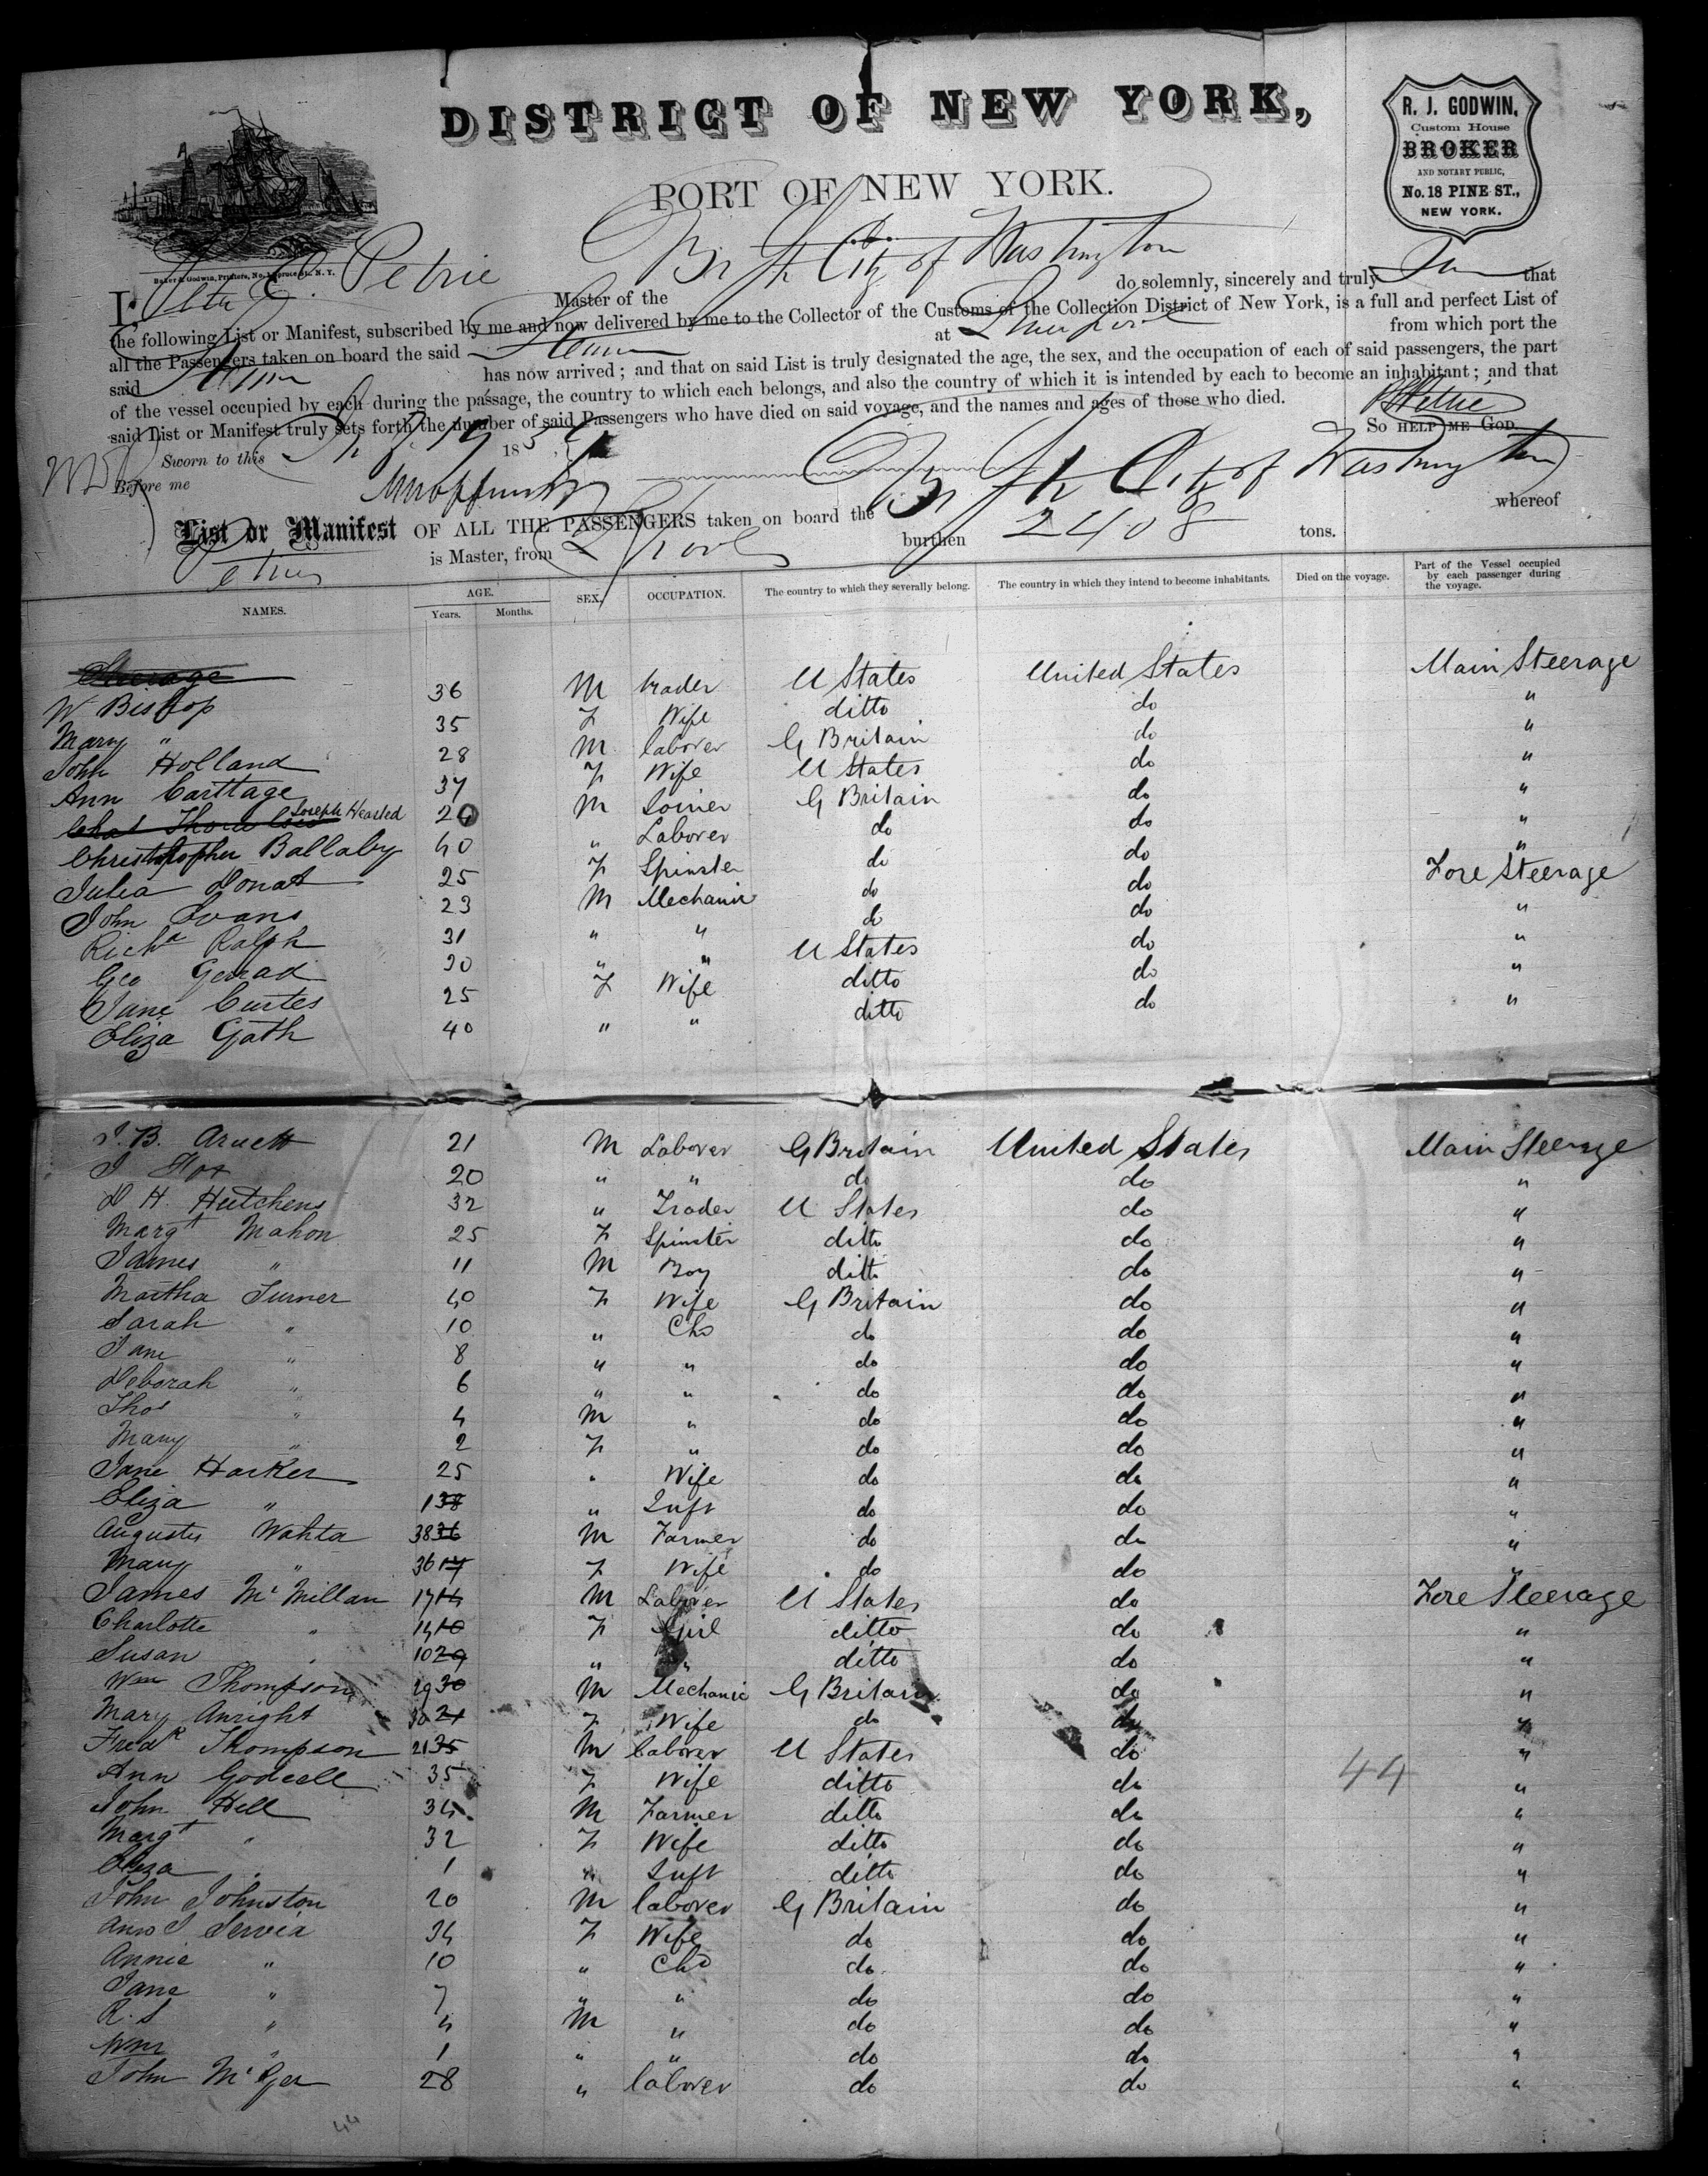 DISTRICT OF NEW YORK,
PORT OF NEW YORK.
R. J. GODWIN,
Custom House
BROKER
AND NOTARY PUBLIC,
No. 18 PINE ST.,
NEW YORK.
Baker & Godwin, Printers, No. 1 Spruce St. N. Y.
I, Petrie Master of the Br St City of Washington do solemnly, sincerely and truly that
the following List or Manifest, subscribed by me and now delivered by me to the Collector of the Customs of the Collection District of New York, is a full and perfect List of
all the Passengers taken on board the said at Liverpool from which port the
said has now arrived; and that on said List is truly designated the age, the sex, and the occupation of each of said passengers, the part
of the vessel occupied by each during the passage, the country to which each belongs, and also the country of which it is intended by each to become an inhabitant; and that
said List or Manifest truly sets forth the number of said Passengers who have died on said voyage, and the names and ages of those who died.
So HELP ME GOD.
Petrie
Sworn to this 19 185
Before me
List or Manifest OF ALL THE PASSENGERS taken on board the Br St City of Washington whereof
Petrie is Master, from L'pool burthen 2408 tons.
NAMES. AGE. Years. Months. SEX. OCCUPATION. The country to which they severally belong. The country in which they intend to become inhabitants. Died on the voyage. Part of the Vessel occupied by each passenger during the voyage.
Steerage
W Bishop 36 M trader U States United States Main Steerage
Mary " 35 F Wife ditto do "
John Holland 28 M laborer G Britain do "
Ann Carttage 37 F Wife U States do "
Joseph Hearted 20 M Joiner G Britain do "
Christopher Ballaby 40 " Laborer do do "
Julia Donat 25 F Spinster do do "
John Evans 23 M Mechanic do do Fore Steerage
Richd Ralph 31 " " do do "
Geo Gerrad 30 " " U States do "
Jane Curtes 25 F Wife ditto do "
Eliza Gath 40 " " ditto do "
J. B. Aruett 21 M Laborer G Britain United States Main Steerage
J 20 " " do do "
D H Hutchens 32 " Trader U States do "
Margt Mahon 25 F Spinster ditto do "
James " 11 M Boy ditto do "
Martha Turner 40 F Wife G Britain do "
Sarah " 10 " Chd do do "
Jane " 8 " " do do "
Deborah " 6 " " do do "
Thos " 4 M " do do "
Mary " 2 F " do do "
Jane Harker 25 " Wife do do "
Eliza " 1 38 " Inft do do "
Augustus Wahta 38 36 M Farmer do do "
Mary " 36 17 F Wife do do "
James McMillan 17 14 M Laborer U States do Fore Steerage
Charlotte " 14 10 F Girl ditto do "
Susan " 10 29 " " ditto do "
Wm Thompson 29 30 M Mechanic G Britain do "
Mary Anright 30 21 F Wife do do "
Fredk Thompson 21 35 M laborer U States do "
Ann Godcell 35 F Wife ditto do "
John Hell 34 M Farmer ditto do "
Margt " 32 F Wife ditto do "
Eliza " 1 " Inft ditto do "
John Johnston 20 M laborer G Britain do "
Ann J Servia 34 F Wife do do "
Annie " 10 " Chd do do "
Jane " 7 " " do do "
R. S " 4 M " do do "
Wm " 1 " " do do "
John 28 " laborer do do "
44
44